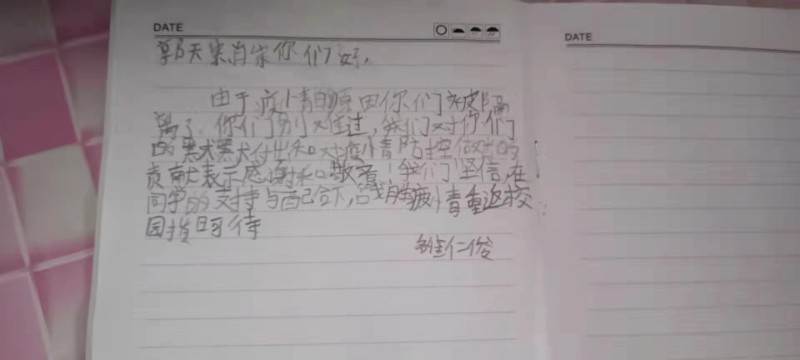 DATE
DATE
郭天宋肖宋你们好,
由于疫情的原因你们被隔
离了,你们别难过,我们对你们
的默默付出和对疫情防控做出的
贡献表示感谢和敬意!我们坚信,在
同学的支持与配合下,战胜疫情重返校
园指日可待
仁俊